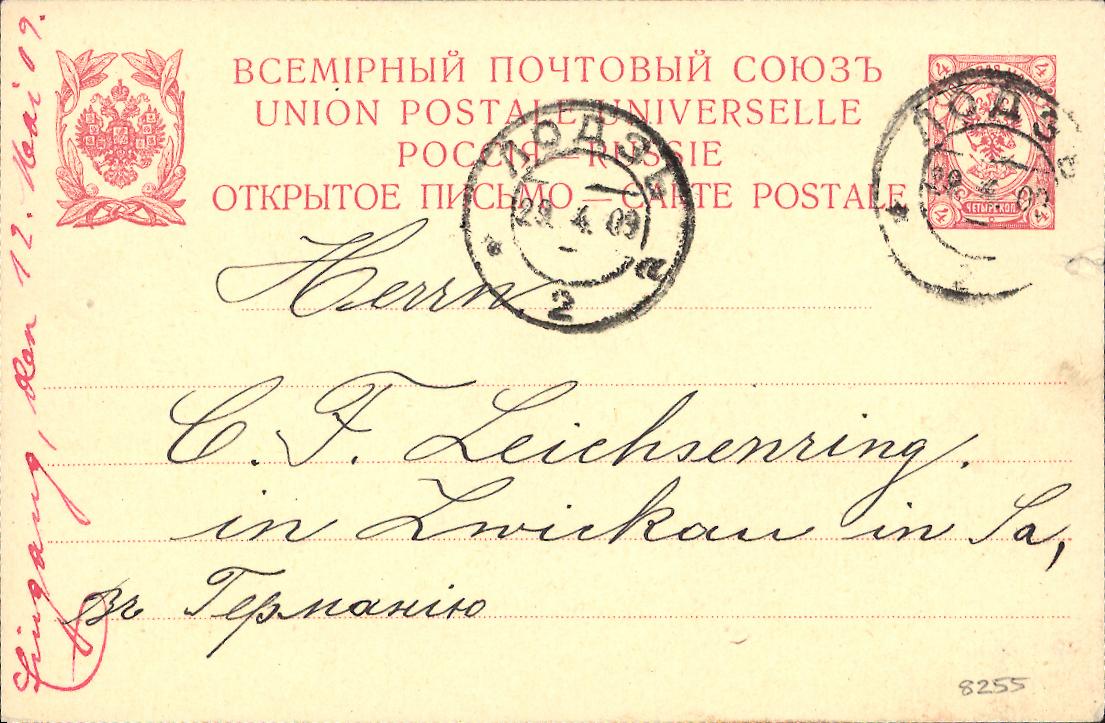 ВСЕМІРНЫЙ ПОЧТОВЫЙ СОЮЗЪ
UNION POSTALE UNIVERSELLE
РОССІЯ – RUSSIE
ОТКРЫТОЕ ПИСЬМО – CARTE POSTALE
4 4
4 ЧЕТЫР.КОП. 4
ЛОДЗЬ
29. 4. 09
* a
2
ЛОДЗЬ
29. 4. 09
*
2
Herrn
C. F. Leichsenring.
in Zwickau in Sa,
Въ Германію
Eingang, den 12. Mai 09.
8255